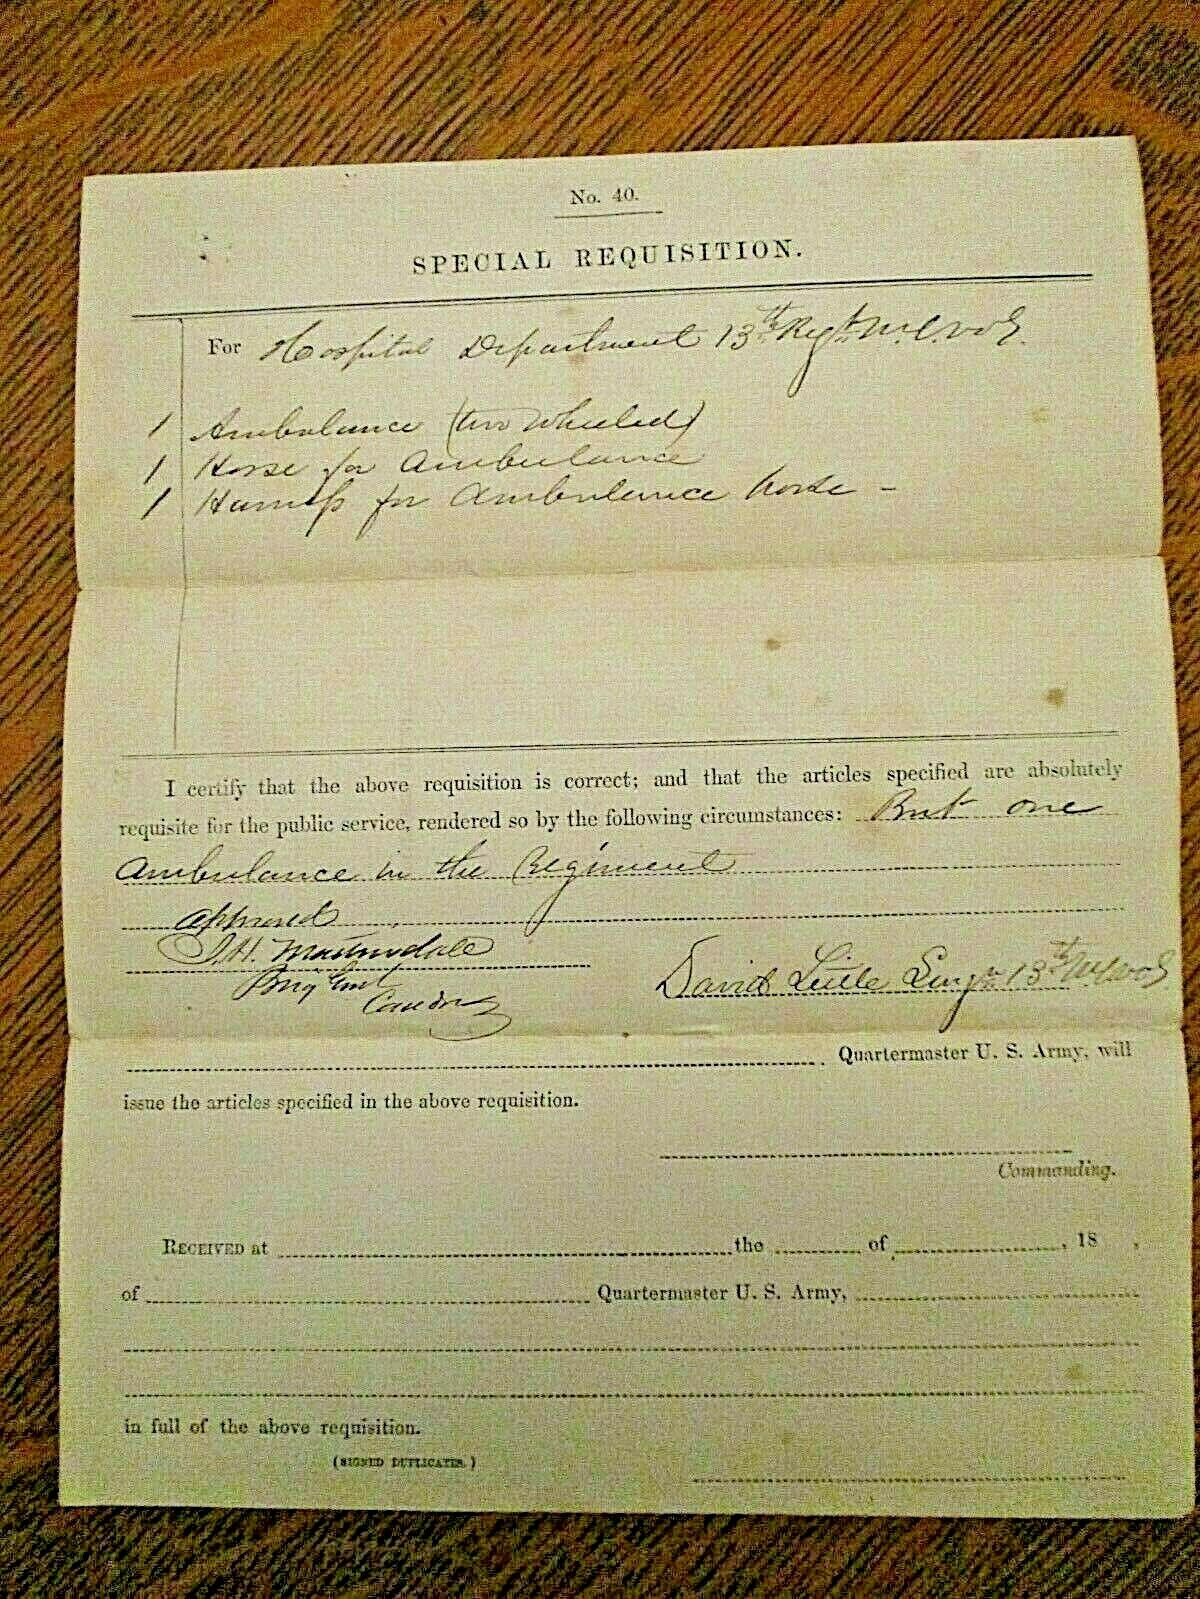 No. 40.
SPECIAL REQUISITION.
For Hospital Department 13th Regt. N.Y. Vols.
1 Ambulance (two Wheeled)
1 Horse for Ambulance
1 Harness for Ambulance horse -
I certify that the above requisition is correct; and that the articles specified are absolutely
requisite for the public service, rendered so by the following circumstances: But one
Ambulance in the Regiment
approved
J.H. Martindale
Brig Genl
Comdg
David Little Surgn 13th N.Y. Vols
Quartermaster U. S. Army, will
issue the articles specified in the above requisition.
Commanding.
RECEIVED at the of , 18 ,
of Quartermaster U. S. Army,
in full of the above requisition.
(SIGNED DUPLICATES.)